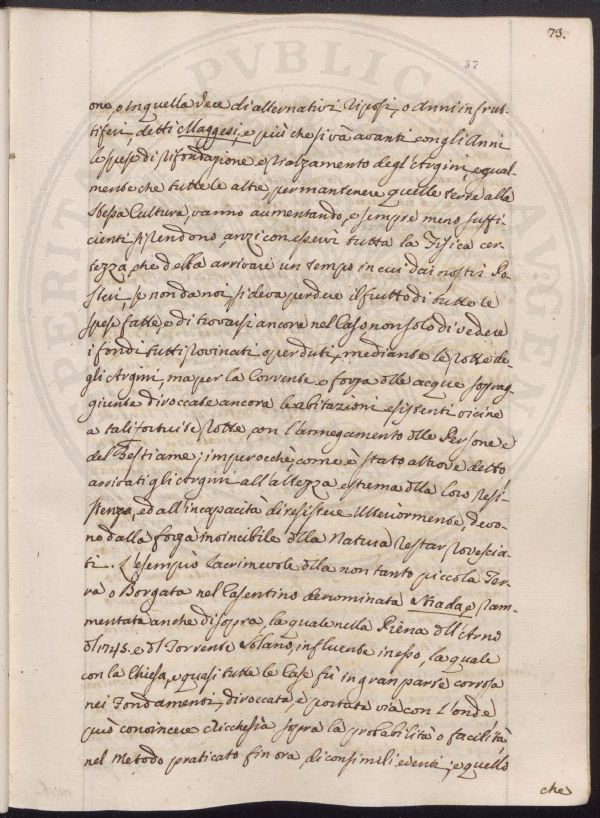 73.
37
one, o in quella vece di alternativi Riposi, o Anni infrut-
tiferi, detti Maggesi, e più che si và avanti con gli Anni
le spese di rifondazione e rialzamento degl'Argini, egual-
mente che tutte le altre, per mantenere quelle terre alla
stessa Cultura vanno aumentando, e sempre meno suffi-
cienti si rendono, anzi con esservi tutta la Fisica cer-
tezza, che debba arrivare un tempo in cui dai nostri Po-
steri, se non da noi, si deva perdere il frutto di tutte le
spese fatte, e di trovarsi ancora nel Caso non solo di vedere
i fondi tutti rovinati o perduti, mediante le rotte de-
gli Argini, ma per la Corrente e forza delle acque soprag-
giunte diroccate ancora le abitazioni esistenti vicine
a tali fortuite rotte, con l'annegamento delle Persone e
del Bestiame; imperocchè, come è stato altrove detto
arrivati gli Argini all'altezza estrema della loro resi-
stenza, ed all'incapacità di resistere ulteriormente, devo-
no dalla forza invincibile della Natura restar rovescia-
ti. L'esempio lacrimevole della non tanto piccola Ter-
ra o Borgata nel Casentino denominata Strada, e ram-
mentata anche di sopra, la quale nella Piena dell'Arno
del 1745. e del Torrente Solano, influente in esso, la quale
con la Chiesa, e quasi tutte le Case fù in gran parte corrosa
nei Fondamenti, diroccata e portata via con l'onde
può convincere chicchesia sopra la probabilità o facilità,
nel Metodo praticato fin ora di consimili eventi; e quello
che